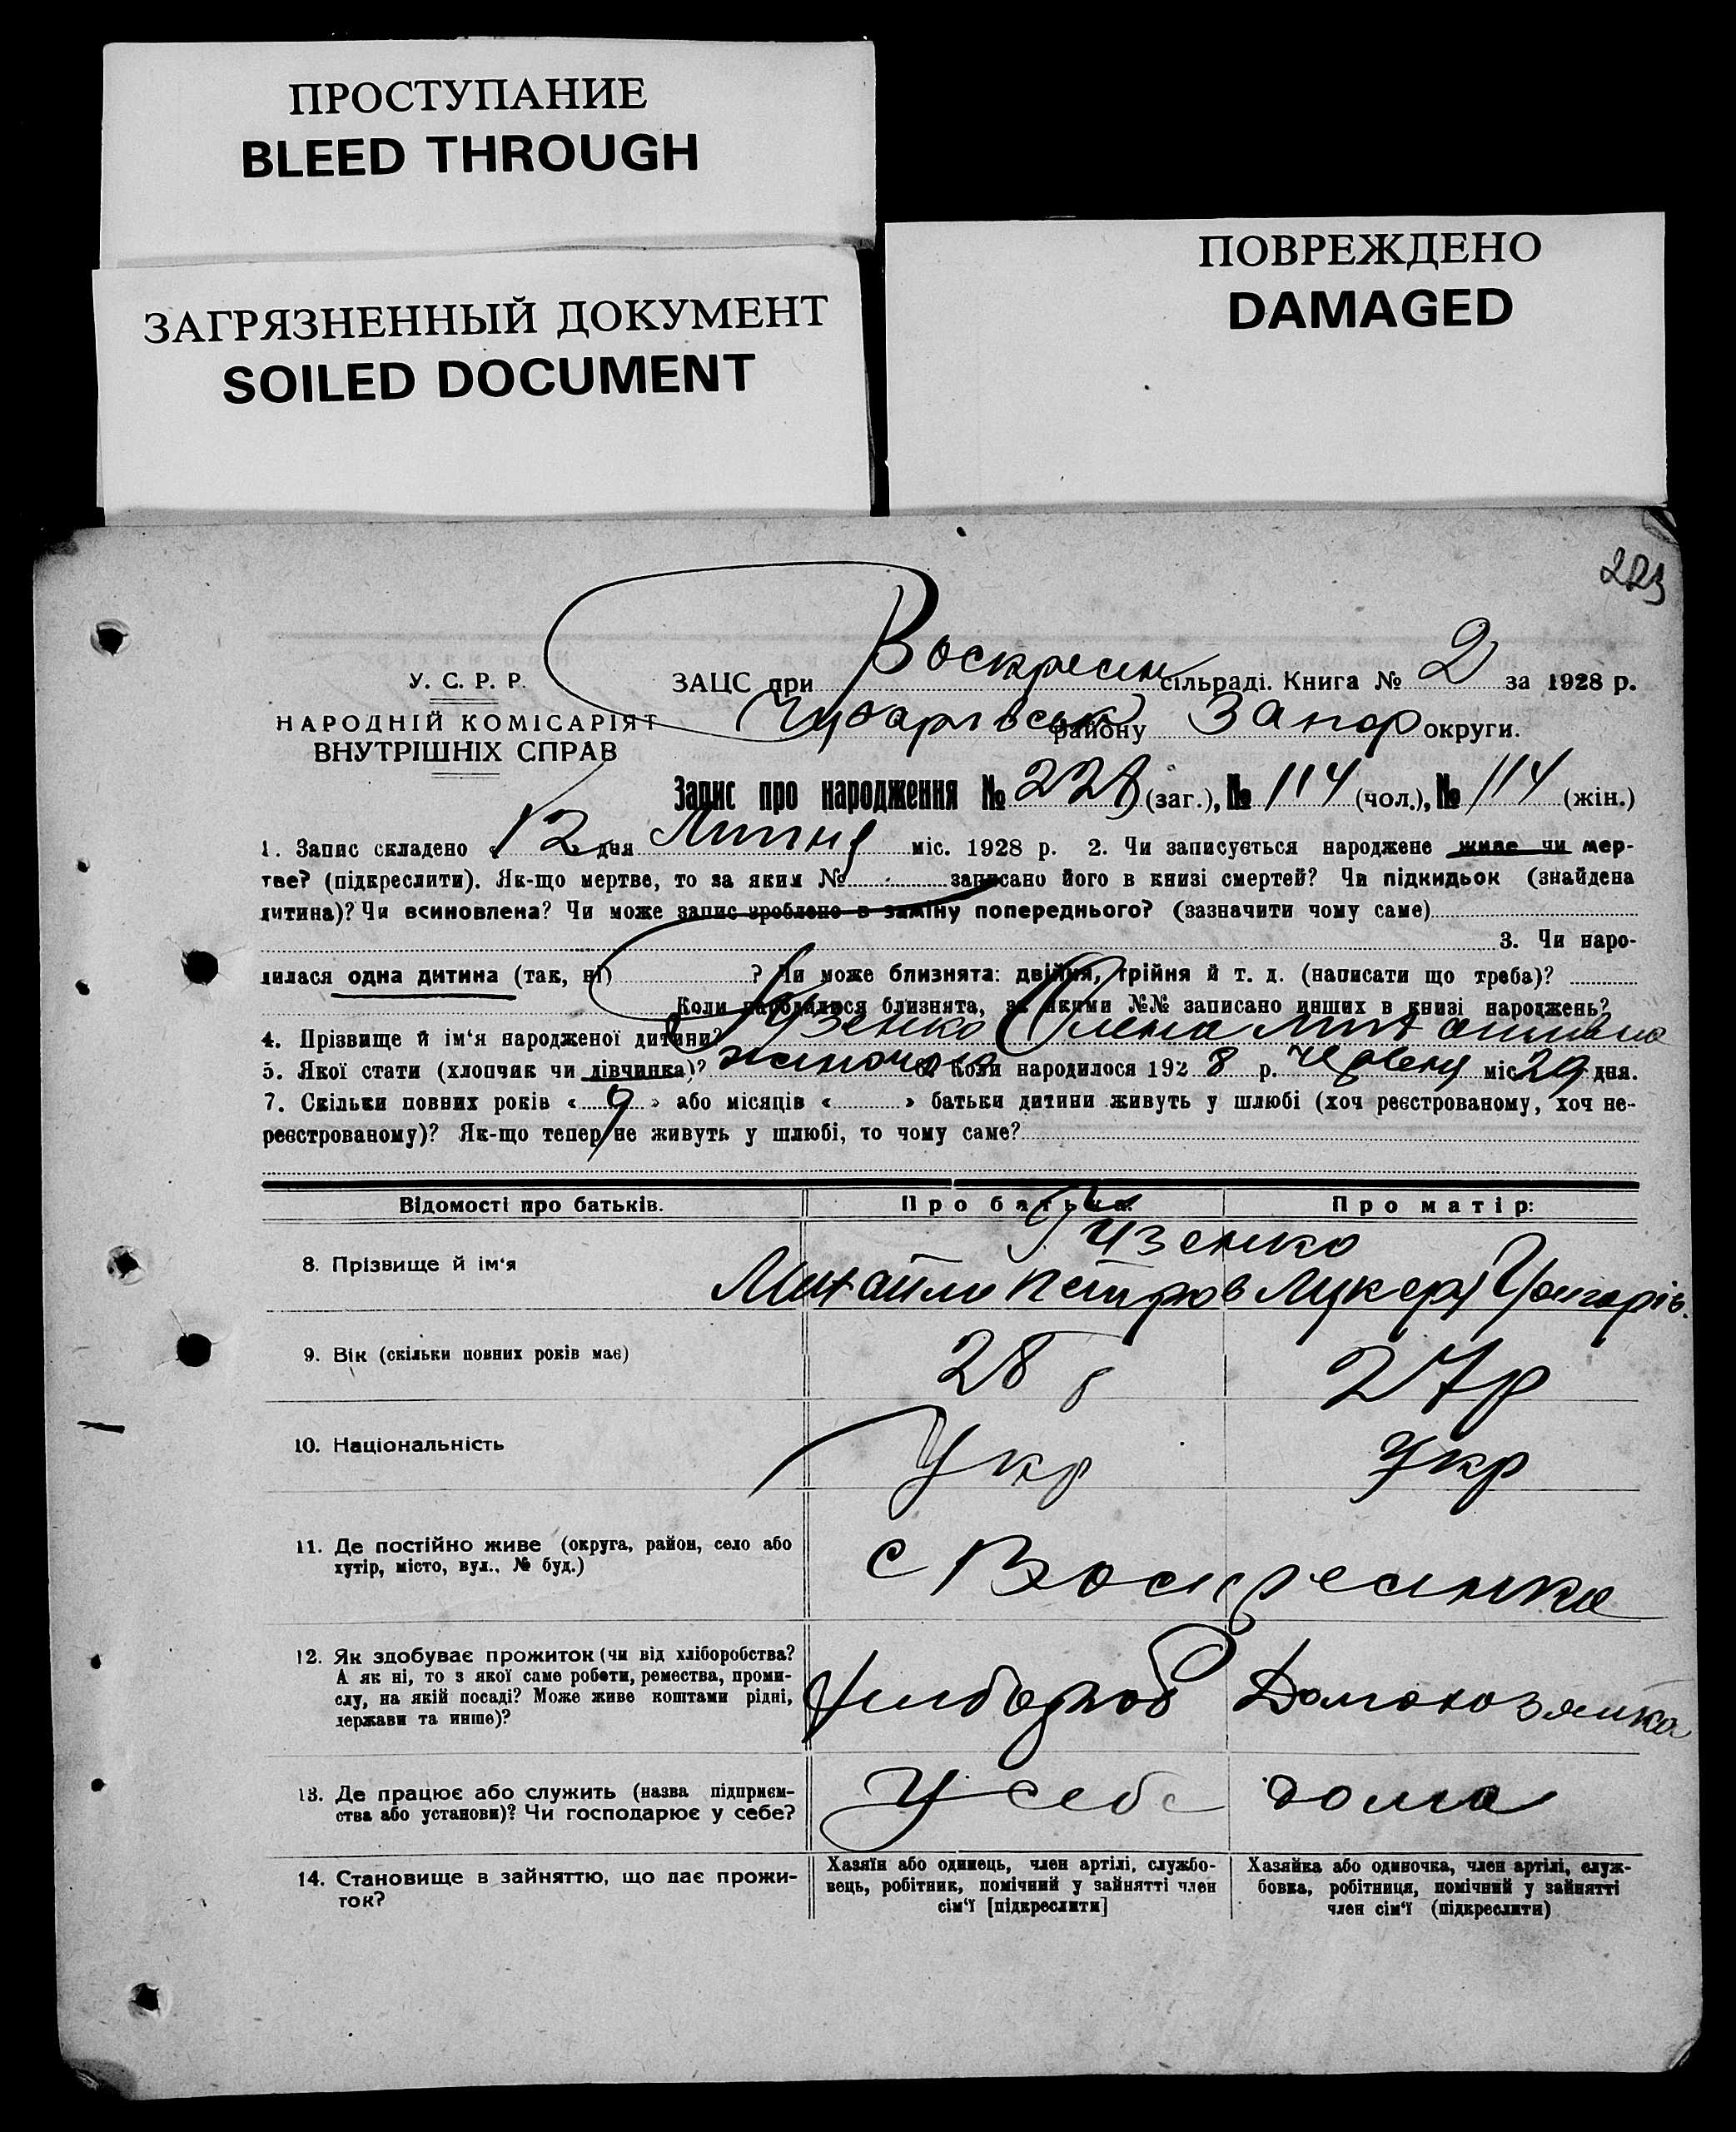 ПРОСТУПАНИЕ
BLEED THROUGH
ЗАГРЯЗНЕННЫЙ ДОКУМЕНТ
SOILED DOCUMENT
ПОВРЕЖДЕНО
DAMAGED
223
У. С. Р. Р.
НАРОДНІЙ КОМІСАРІЯТ
ВНУТРІШНІХ СПРАВ
ЗАЦС при Воскресен сільраді. Книга № 2 за 1928 р.
Чубарівськ району Запор округи.
Запис про народження № 228 (заг.), № 114 (чол.), № 114 (жін.)
1. Запис складено « 12 дня Липня міс. 1928 р. 2. Чи записується народжене живе чи мер-
тве? (підкреслити). Як-що мертве, то за яким № записано його в книзі смертей? Чи підкидьок (знайдена
дитина)? Чи всиновлена? Чи може запис зроблено в заміну попереднього? (зазначити чому саме)
3. Чи наро-
дилася одна дитина (так, ні) ? Чи може близнята: двійня, трійня й т. д. (написати що треба)?
Коли народилося близнята, за якими №№ записано инших в книзі народжень?
4. Прізвище й ім'я народженої дитини? Гузенко Олена Михайлівна
5. Якої статі (хлопчик чи дівчинка)? жіночої 6. Коли народилося 1928 р. Червня міс 29 дня.
7. Скільки повних років « 9 » або місяців « » батьки дитини живуть у шлюбі (хоч реєстрованому, хоч не-
реєстрованому)? Як-що тепер не живуть у шлюбі, то чому саме?
Відомості про батьків. Про батька: Про матір:
Гузенко
8. Прізвище й ім'я Михайло Петров Лукеря Григорів.
9. Вік (скільки повних років має) 28 р 27 р
10. Національність Укр Укр
11. Де постійно живе (округа, район, село або
хутір, місто, вул., № буд.) с Воскресенка
12. Як здобуває прожиток (чи від хліборобства?
А як ні, то з якої саме роботи, ремества, проми-
слу, на якій посаді? Може живе коштами рідні,
держави та инше)? хлібороб Домохозяйка
13. Де працює або служить (назва підприєм-
ства або установи)? Чи господарює у себе? У себе дома
14. Становище в зайняттю, що дає прожи-
ток?
Хазяїн або одинець, член артілі, службо-
вець, робітник, помічний у зайнятті член
сім'ї [підкреслити]
Хазяйка або одиночка, член артілі, служ-
бовка, робітниця, помічний у зайнятті
член сім'ї (підкреслити)